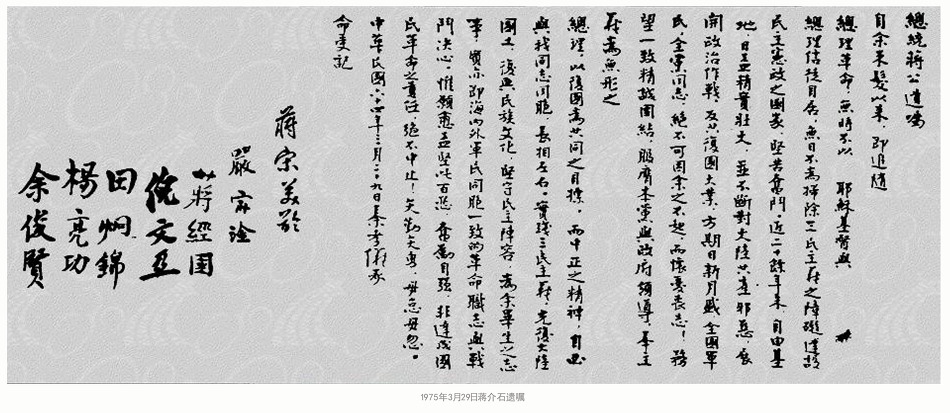 總統蔣公遺囑
自余束髮以來，即追隨
總理革命，無時不以　耶穌基督與
總理信徒自居，無日不為掃除三民主義之障礙建設
民主憲政之國家，堅苦奮鬥。近二十餘年來，自由基
地，日益精實壯大，並不斷對大陸共產邪惡，展
開政治作戰，反共復國大業，方期日新月盛，全國軍
民，全黨同志，絕不可因余之不起，而懷憂喪志！務
望一致精誠團結，服膺本黨與政府領導，奉主
義為無形之
總理，以復國為共同之目標，而中正之精神，自必
與我同志同胞，長相左右。實踐三民主義，光復大陸
國土，復興民族文化，堅守民主陣容，為余畢生之志
事，實亦即海內外軍民同胞一致的革命職志與戰
鬥決心。惟願愈益堅此百忍，奮勵自強，非達成國
民革命之責任，絕不中止！矢勤矢勇，毋怠毋忽。
中華民國六十四年三月二十九日秦孝儀承
命受記
蔣宋美齡
嚴家淦
蔣經國
倪文亞
田炯錦
楊亮功
余俊賢
1975年3月29日蔣介石遺囑